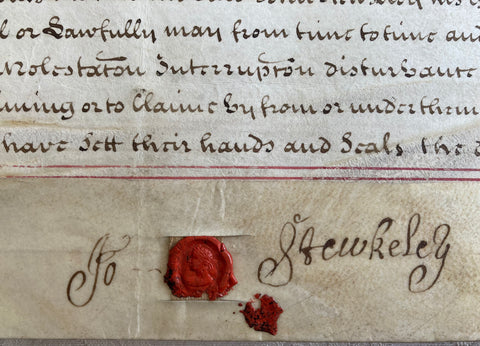 l or Lawfully may from time to time and
Molestac̃on Interrupc̃on disturbance
iming or to Claime by from or under them
have Sett their hands and Seals the
Jo Stewkeley